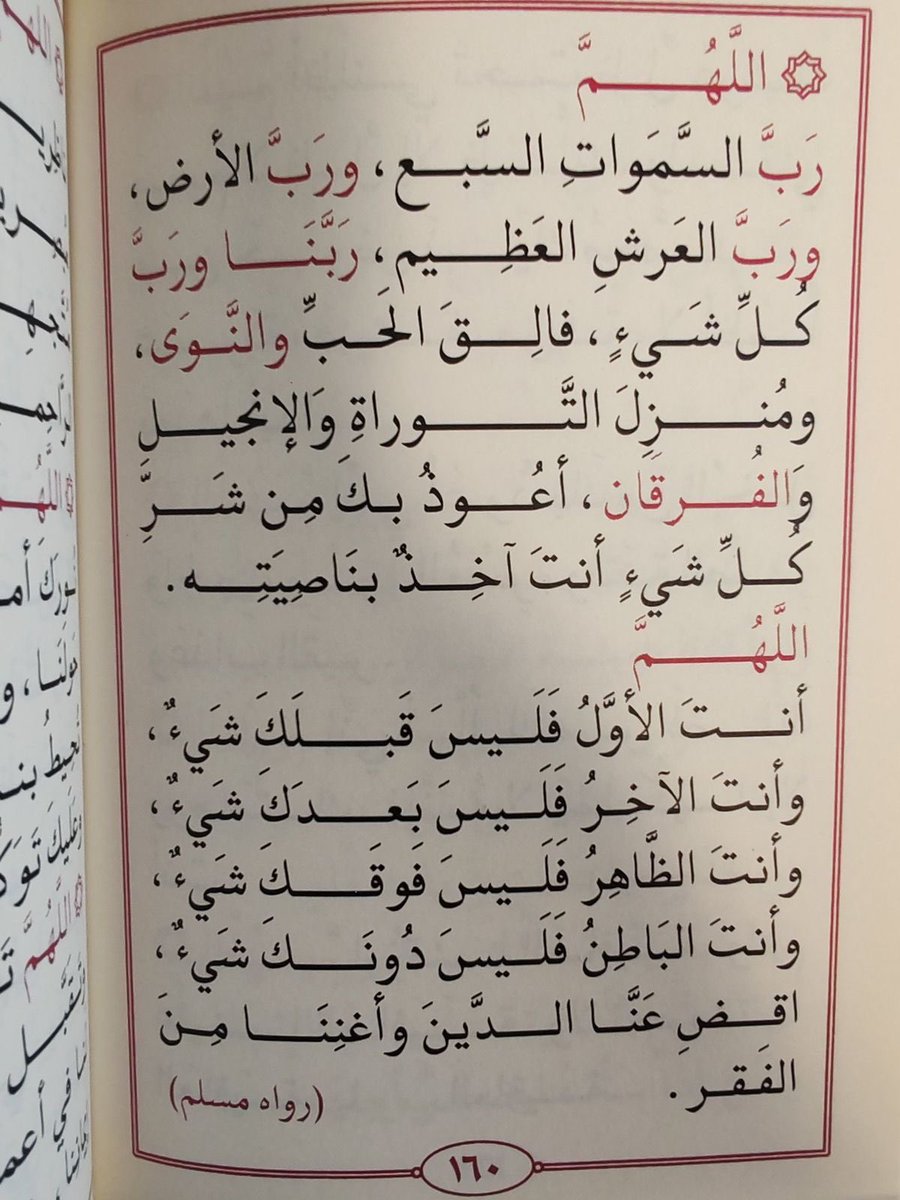 اللَّهُمَّ
رَبَّ السَّمَوَاتِ السَّبع، ورَبَّ الأرض،
ورَبَّ العَرشِ العَظِيمِ، رَبَّنَا ورَبَّ
كُلِّ شَيءٍ، فَالِقَ الحَبِّ والنَّوَى،
ومُنزِلَ التَّوراةِ وَالإنجيلِ
وَالفُرقَان، أعُوذُ بكَ مِن شَرِّ
كُلِّ شَيءٍ أنتَ آخِذٌ بنَاصِيَتِه.
اللَّهُمَّ
أنتَ الأوَّلُ فَلَيسَ قَبلَكَ شَيءٌ،
وأنتَ الآخِرُ فَلَيسَ بَعدَكَ شَيءٌ،
وأنتَ الظَّاهِرُ فَلَيسَ فَوقَكَ شَيءٌ،
وأنتَ البَاطِنُ فَلَيسَ دُونَكَ شَيءٌ،
اقضِ عَنَّا الدَّينَ وأغنِنَا مِنَ
الفَقر.
(رواه مسلم)
١٦٠